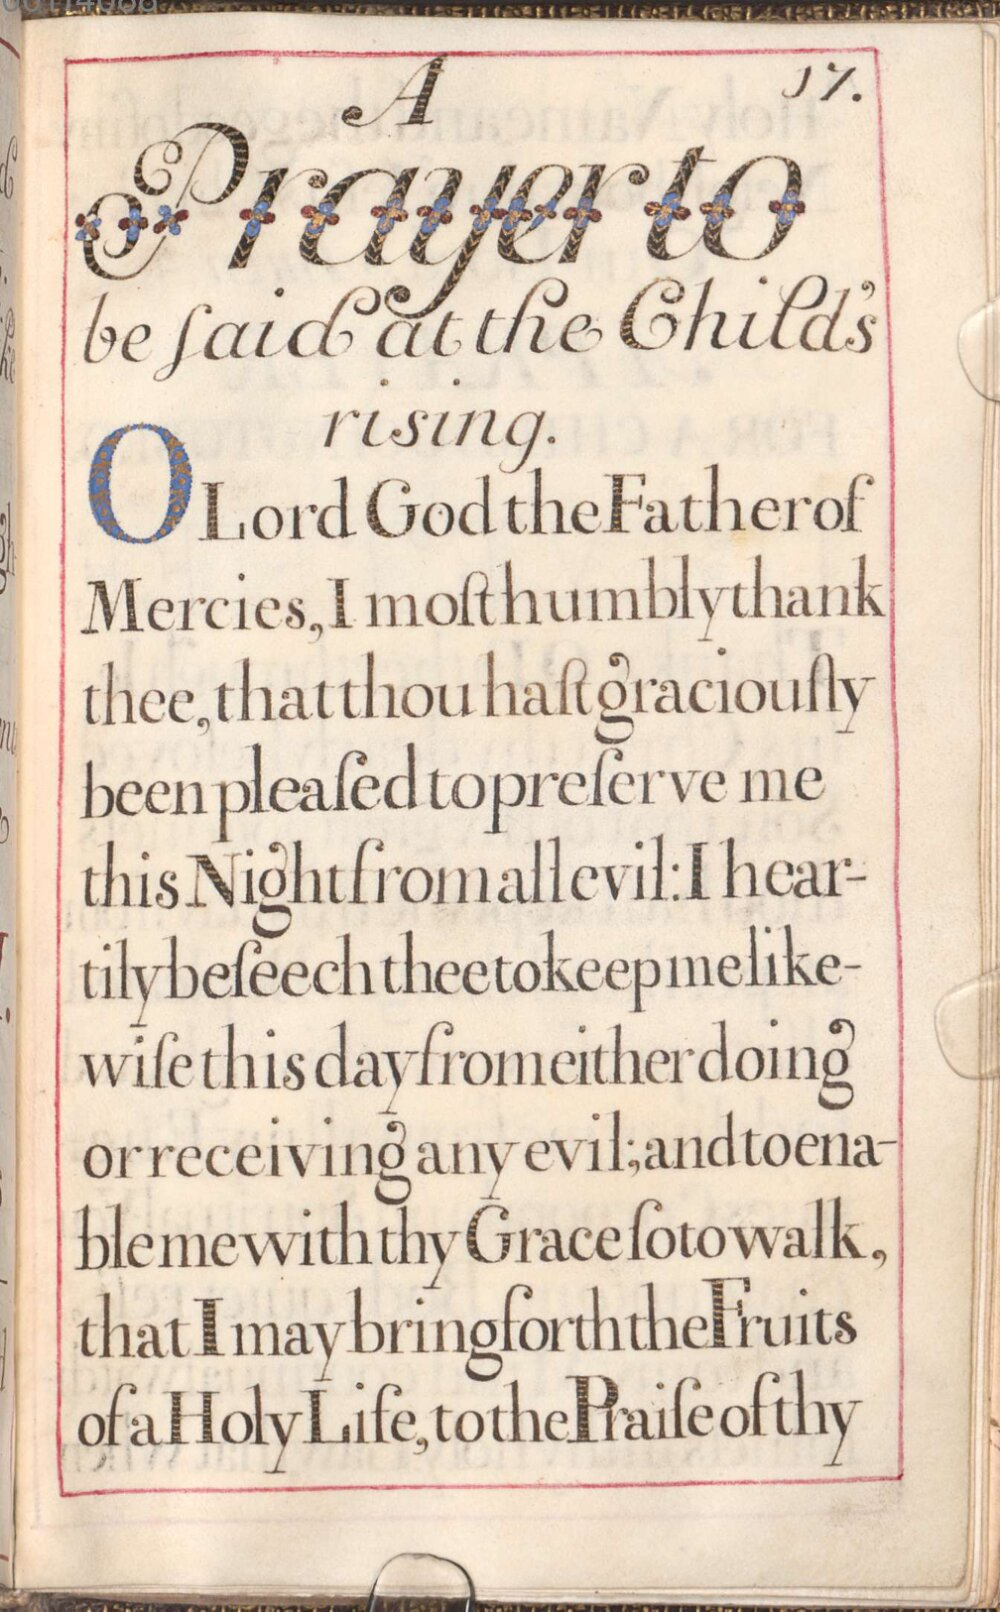 17.
A
Prayer to
be ſaid at the Child's
rising.
O Lord God the Father of
Mercies, I moſt humbly thank
thee, that thou haſt graciouſly
been pleaſed to preſerve me
this Night from all evil: I hear-
tily beſeech thee to keep me like-
wiſe this day from either doing
or receiving any evil; and to ena-
ble me with thy Grace ſo to walk,
that I may bring forth the Fruits
of a Holy Life, to the Praiſe of thy